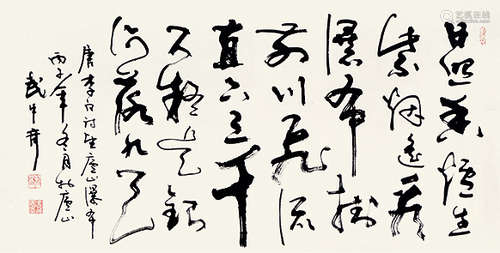 日照香爐生
紫烟遥看
瀑布掛
前川飛流
直下三千
尺疑是銀
河落九天
唐李白詩望廬山瀑布
丙子年冬月於廬山
武中奇